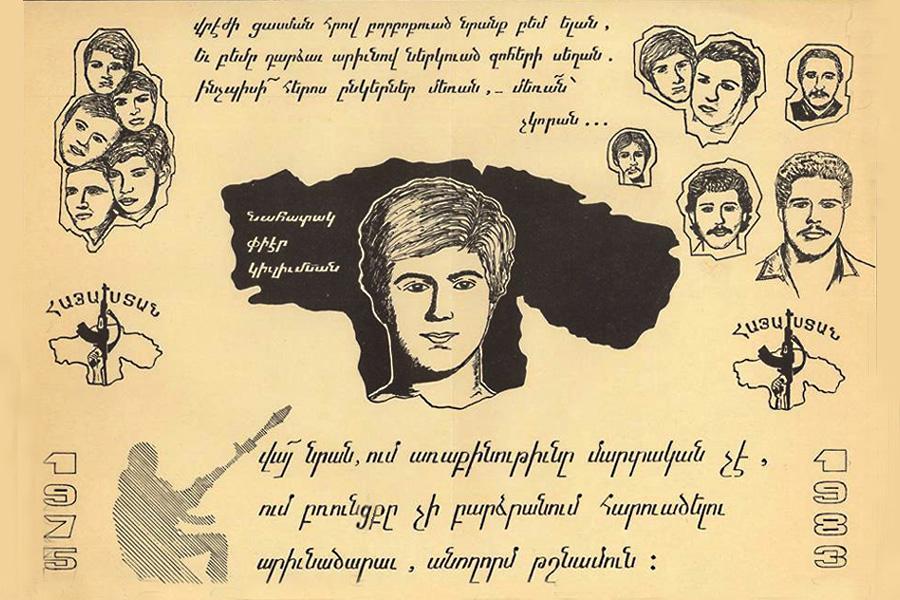 վրէժի ցասման հրով բորբոքուած նրանք բեմ ելան,
եւ բեմը դարձաւ արիւնով ներկուած զոհերի սեղան.
ինչպիսի՜ հերոս ընկերներ մեռան,_ մեռա՜ն՝
չկորան...
նահատակ
փիէր
կիւլիւմեան
ՀԱՅԱՍՏԱՆ
ՀԱՅԱՍՏԱՆ
վա՜յ նրան, ում առաքինութիւնը մարտական չէ,
ում բռունցքը չի բարձրանում հարուածելու
արիւնածարաւ, անողորմ թշնամուն:
1975
1983